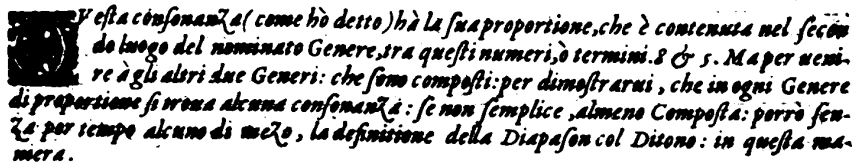 QVesta consonanza (come hò detto) hà la sua proportione, che è contenuta nel secon
do luogo del nominato Genere, tra questi numeri, ò termini. 8 & 5. Ma per ueni-
re à gli altri due Generi: che sono composti: per dimostrarui, che in ogni Genere
di proportione si troua alcuna consonanza: se non semplice, almeno Composta: porrò sen-
za por tempo alcuno di mezo, la definitione della Diapason col Ditono: in questa ma-
niera.